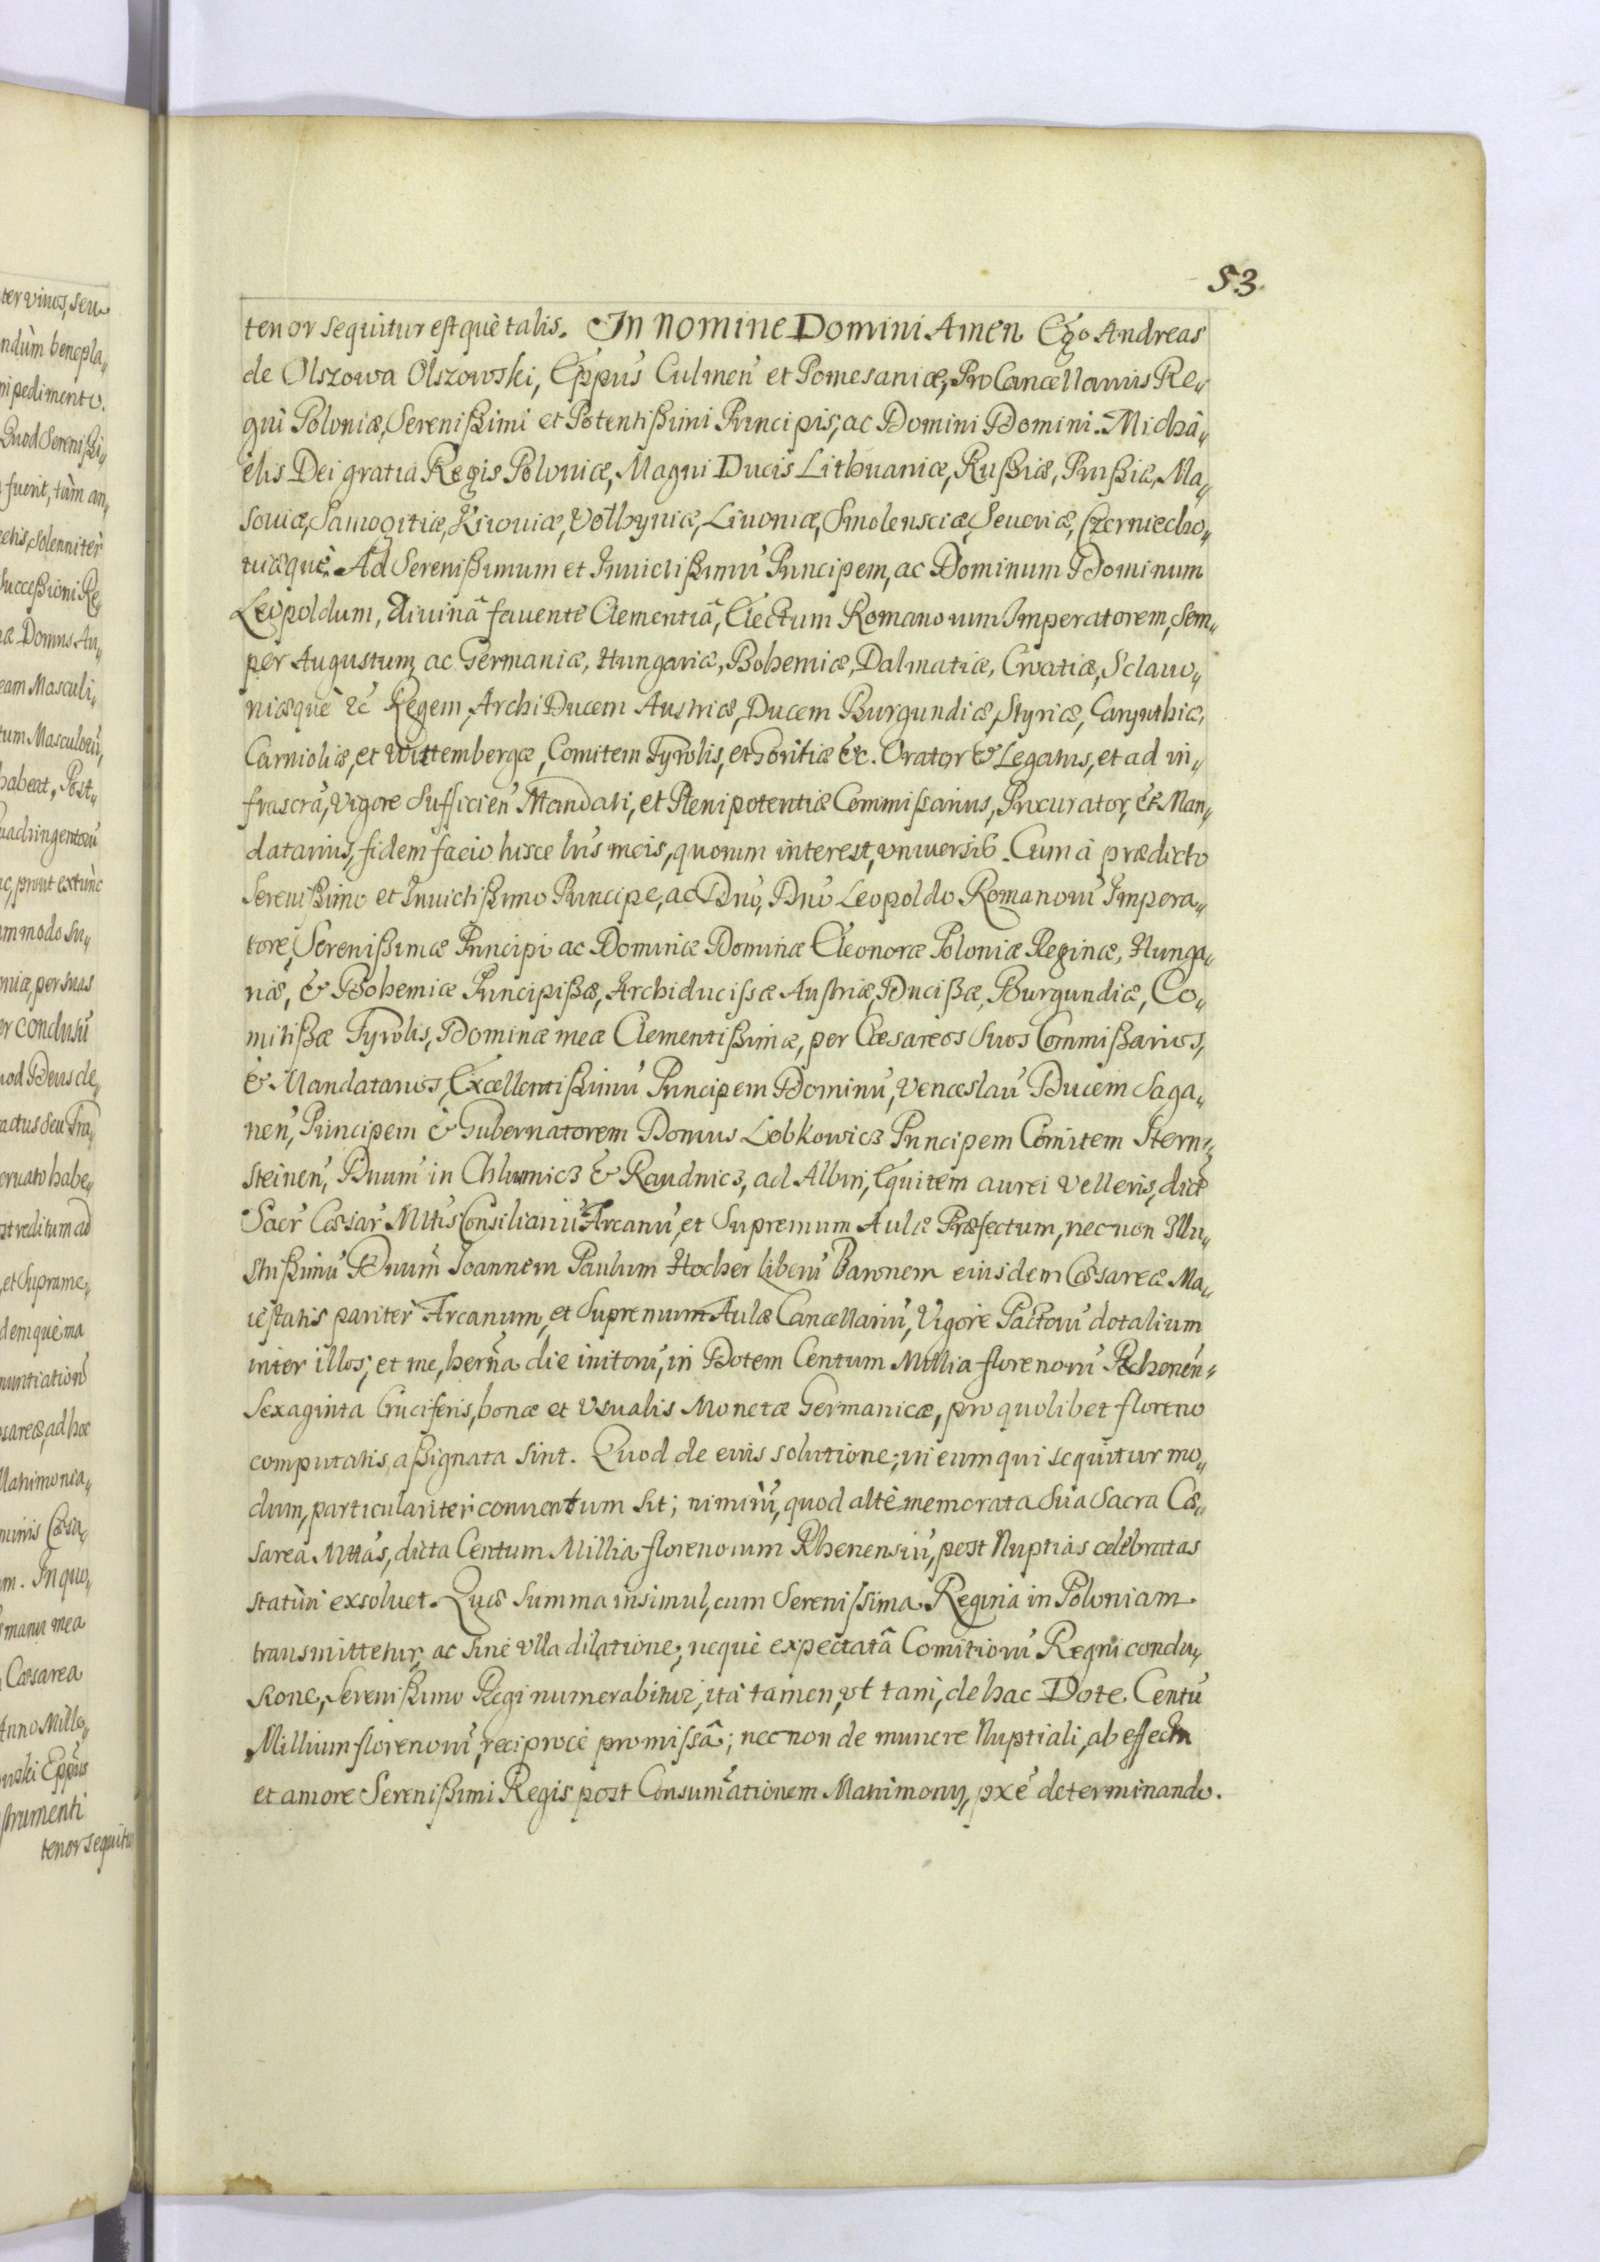 53.
tenor sequitur estquè talis. In Nomine Domini Amen Ego Andreas
de Olszowa Olszowski, Eppus Culmen̄ et Pomesaniæ, ProCancellarius Re„
gni Poloniæ, Serenißimi et Potentißimi Principis, ac Domini Domini Michâ„
elis Dei gratia Regis Poloniæ, Magni Ducis Lithuaniæ, Rußiæ, Prußiæ, Ma„
souiæ, Samogitiæ, Kiiouiæ, Volhyniæ, Liuoniæ, Smolensciæ, Seueriæ, Czerniecho„
uiæquè. Ad Serenißimum et Inuictißimū Principem, ac Dominum Dominum
Leopoldum, diuinâ fauente Clementiâ, Electum Romanorum Imperatorem, Sem„
per Augustum, ac Germaniæ, Hungariæ, Bohemiæ, Dalmatiæ, Croatiæ, Sclauo„
niæquè &c Regem, ArchiDucem Austriæ, Ducem Burgundiæ, Styriæ, Carynthiæ,
Carnioliæ, et Wittembergæ, Comitem Tyrolis, et Goritiæ &c. Orator & Legatus, et ad in„
frascrā, Vigore Sufficien̄ Mandati, et Plenipotentiæ Commissarius, Procurator, et Man„
datarius, fidem facio hisce lrīs meis, quorum interest, vniuersis. Cum à prædicto
Serenißimo et Inuictißimo Principe, ac Dnō, Dnō Leopoldo Romanorū Impera„
tore, Serenißimæ Principi ac Dominæ Dominæ Eleonoræ Poloniæ Reginæ, Hunga„
riæ, & Bohemiæ Principißæ, Archiducissæ Austriæ, Ducißæ Burgundiæ, Co„
mitißæ Tyrolis, Dominæ meæ Clementißimæ, per Cæsareos Suos Commißarios,
& Mandatarios, Excellentißimū Principem Dominū, Venceslaū Ducem Saga„
nen̄, Principem & Gubernatorem Domus Lobkowicz Principem Comitem Stern„
steinen̄, Dnum in Chlumicz & Raudnicz, ad Albim, Equitem aurei Velleris, dict̄
Sacr̄ Cæsar̄ Mttis Consiliariū Arcanū, et Supremum Aulæ Præfectum, nec non Illu„
strißimū Dnum Ioannem Paulum Hocher Liberū Baronem eiusdem Cæsareæ Ma„
iestatis pariter Arcanum, et Supremum Aulæ Cancellariū, Vigore Pactorū dotalium
inter illos, et me, hernā die initorū, in Dotem Centum Millia florenorū Rhenen„
Sexaginta Cruciferis, bonæ et Vsualis Monetæ Germanicæ, pro quolibet floreno
computatis, aßignata sint. Quod de eius solutione, in eum qui sequitur mo„
dum, particulariter conuentum sit; nimirū, quod altè memorata Sua Sacra Cæ„
sarea Mttās, dicta Centum Millia florenorum Rhenensiū, post Nuptias celebratas
statìm exsoluet. Quæ Summa insimul, cum Serenissima Regina in Poloniam
transmittetur, ac sinè vlla dilatione, nequè expectatâ Comitiorū Regni conclu„
sione, Serenißimo Regi numerabitur, ità tamen, vt tam, de hac Dote Centū
Millium florenorū, reciprocè promissâ; nec non de munere Nuptiali, ab effectu
et amore Serenißimi Regis post Consummationem Matrimonij, determinando.